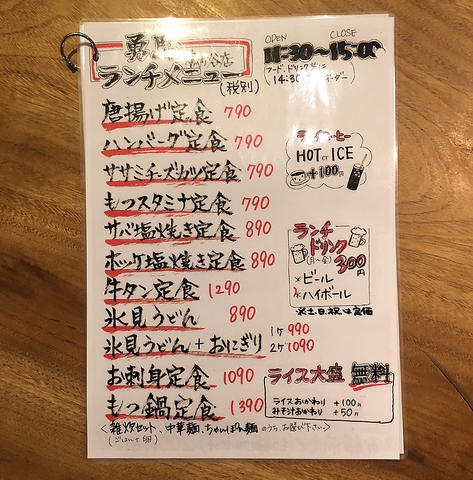 OPEN CLOSE
11:30〜15:00
ランチメニュー
(税別)
唐揚げ定食 790
ハンバーグ定食 790
ササミチーズカツ定食 790
もつスタミナ定食 790
サバ塩焼き定食 890
ホッケ塩焼き定食 890
牛タン定食 1290
氷見うどん 890
氷見うどん+おにぎり 1ケ 990
2ケ 1090
お刺身定食 1090
もつ鍋定食 1390
<雑炊セット、中華麺、ちゃんぽん麺のうち、お選び下さい>
(ごはん+卵)
HOT or ICE
+100円
ランチ
ドリンク
(月〜金) 300円
*ビール
*ハイボール
※土、日、祝は定価
ライス大盛 無料
ライスおかわり +100円
みそ汁おかわり +50円